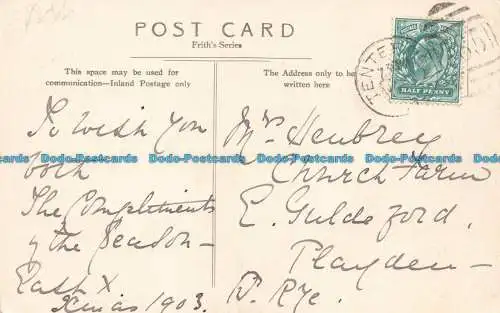 POST CARD
Frith's Series
This space may be used for
communication—Inland Postage only
The Address only to be
written here
TENTER
HALF PENNY
To wish you
both
The Compliments
of the Season—
Xmas 1903.
Mrs Henbrey
Church Farm
E. Guldeford,
Playden—
Nr. Rye.
Dodo-Postcards Dodo-Postcards Dodo-Postcards Dodo-Postcards Dodo-Postcards Dodo-Postcards